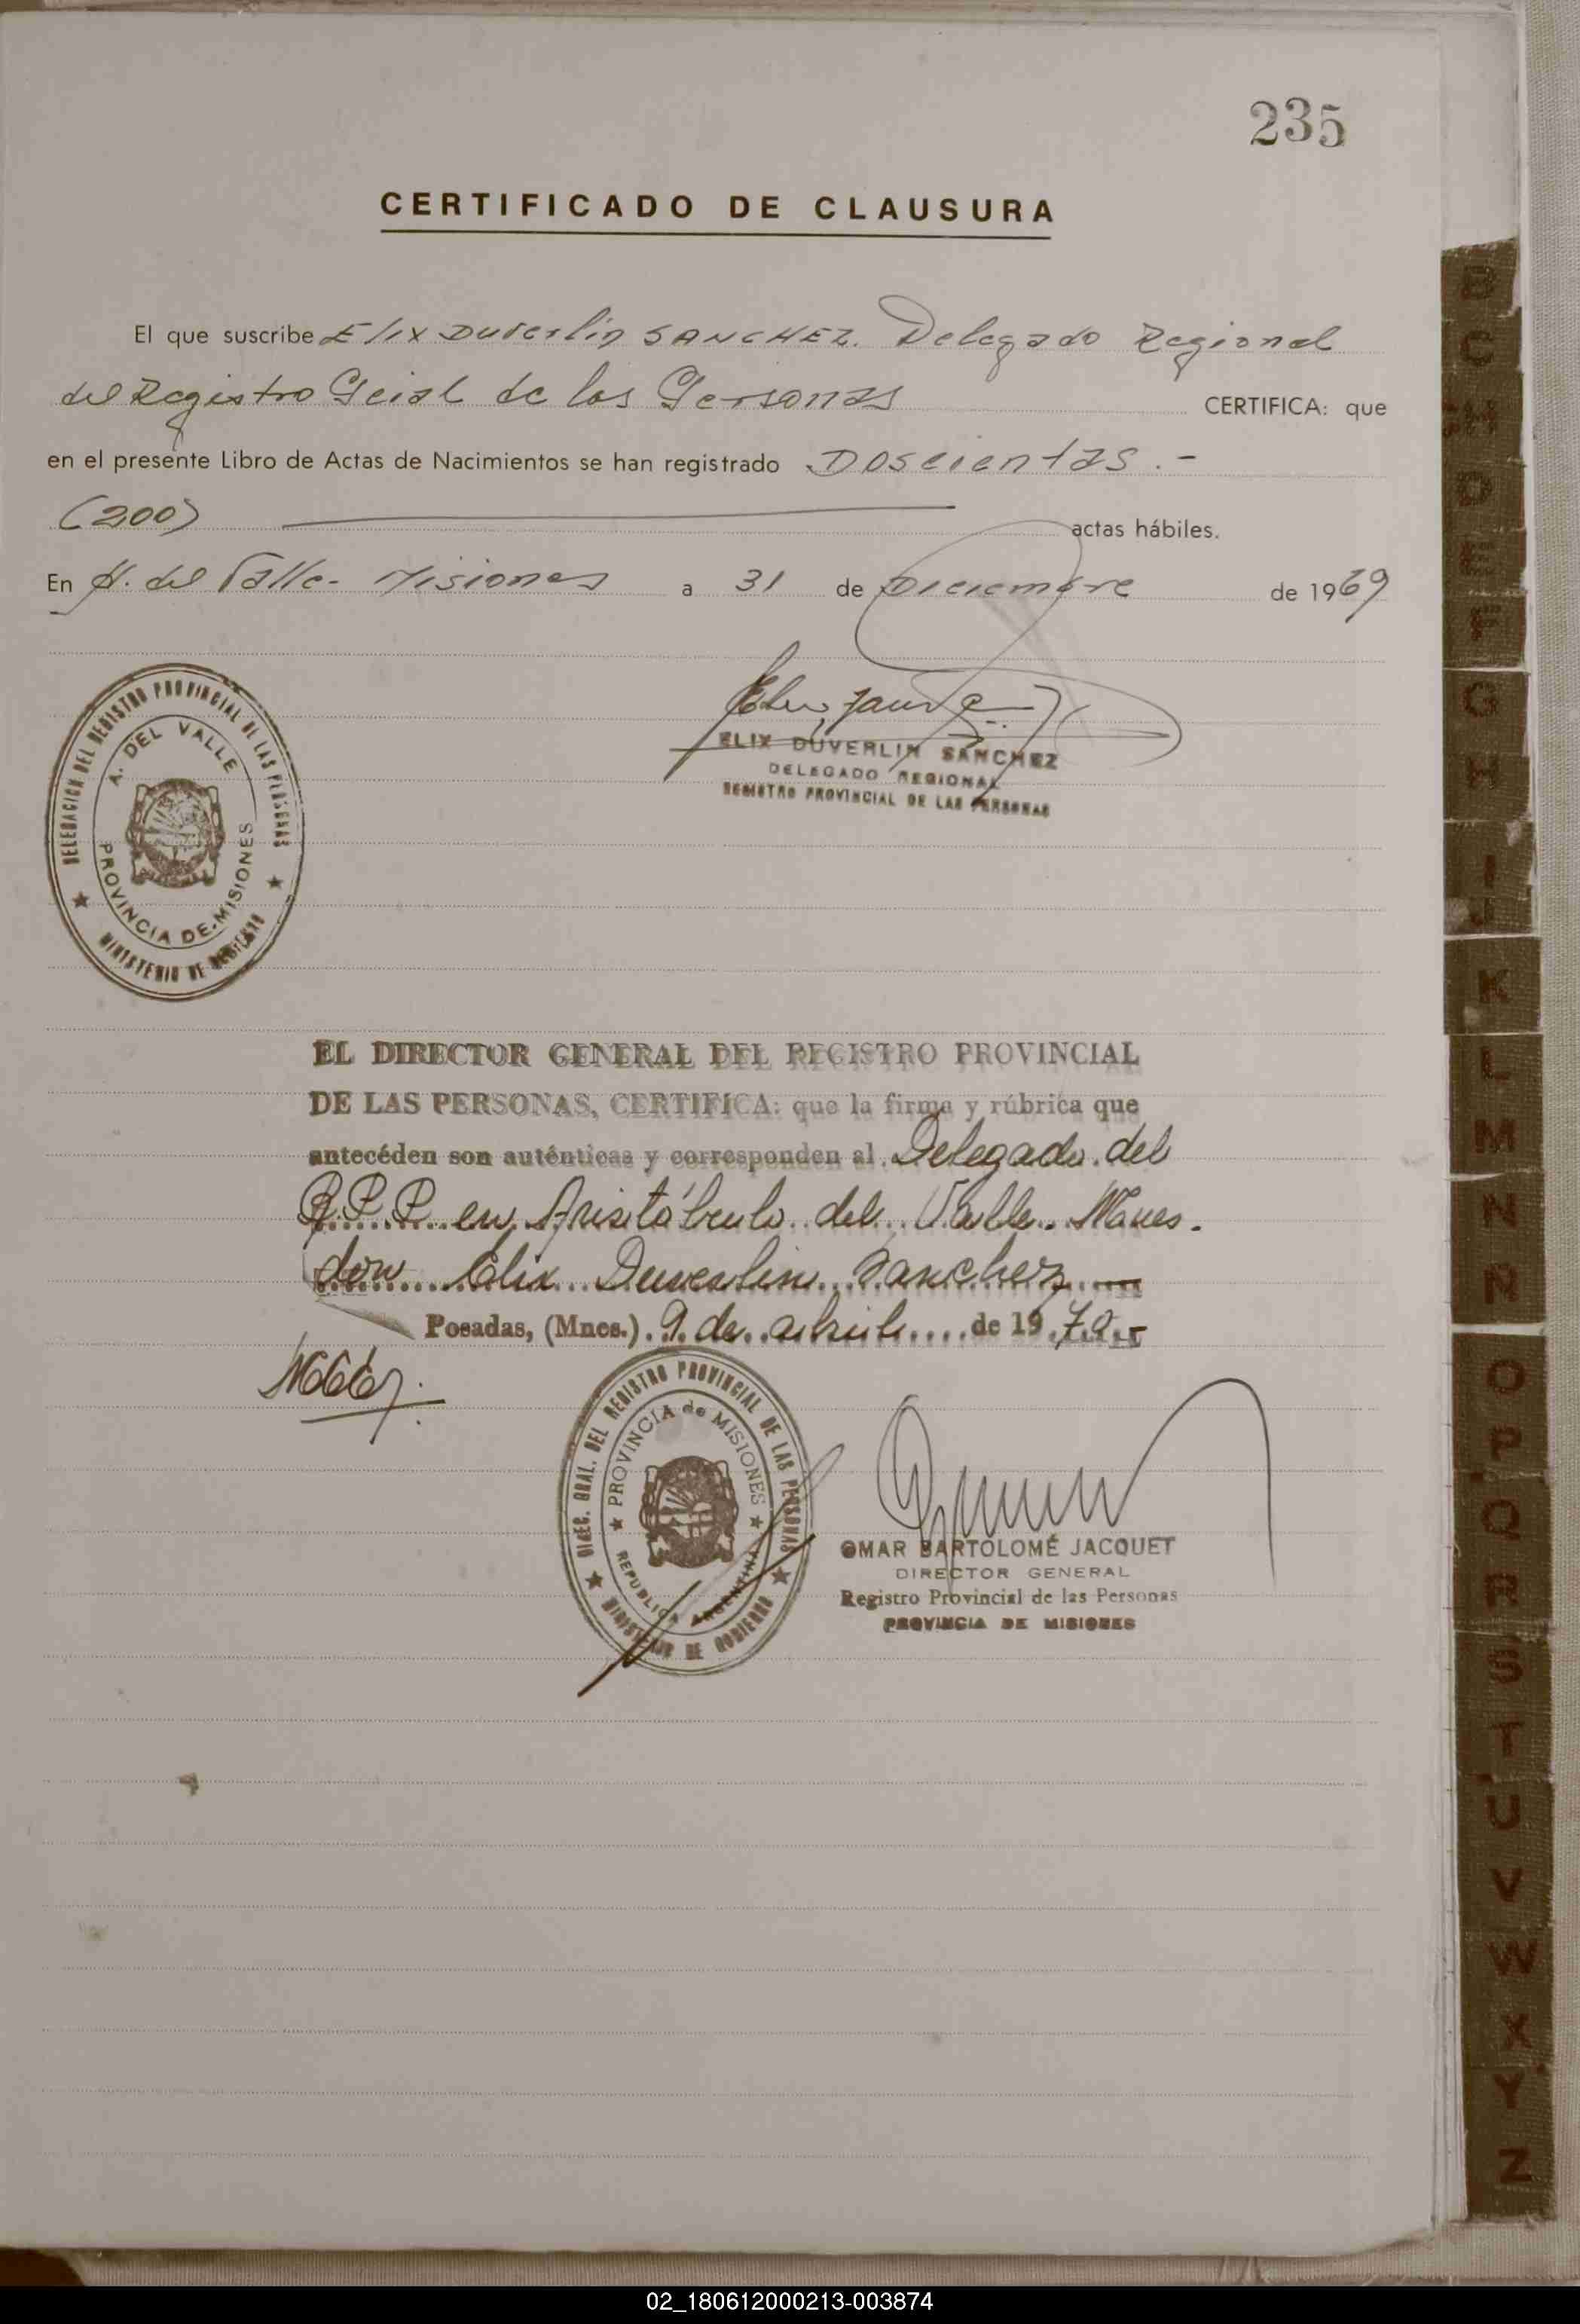 235
CERTIFICADO DE CLAUSURA
El que suscribe Elix Duverlin SANCHEZ. Delegado Regional
del Registro Gral de las Personas CERTIFICA: que
en el presente Libro de Actas de Nacimientos se han registrado Doscientas.-
(200) actas hábiles.
En A. del Valle- Misiones a 31 de Diciembre de 1969
DELEGACION DEL REGISTRO PROVINCIAL DE LAS PERSONAS
A. DEL VALLE
PROVINCIA DE MISIONES
MINISTERIO DE GOBIERNO
ELIX DUVERLIN SANCHEZ
DELEGADO REGIONAL
REGISTRO PROVINCIAL DE LAS PERSONAS
EL DIRECTOR GENERAL DEL REGISTRO PROVINCIAL
DE LAS PERSONAS, CERTIFICA: que la firma y rúbrica que
antecéden son auténticas y corresponden al Delegado del
R.P.P. en Aristóbulo del Valle. Mnes.
don Elix Duverlin Sanchez
Posadas, (Mnes.) 9 de abril de 1970.-
DIREC. GRAL. DEL REGISTRO PROVINCIAL DE LAS PERSONAS
PROVINCIA de MISIONES
REPUBLICA ARGENTINA
MINISTERIO DE GOBIERNO
OMAR BARTOLOMÉ JACQUET
DIRECTOR GENERAL
Registro Provincial de las Personas
PROVINCIA DE MISIONES
B
C
CH
D
E
F
G
H
I
J
K
L
M
N
Ñ
O
P
Q
R
S
T
U
V
W
X
Y
Z
02_180612000213-003874